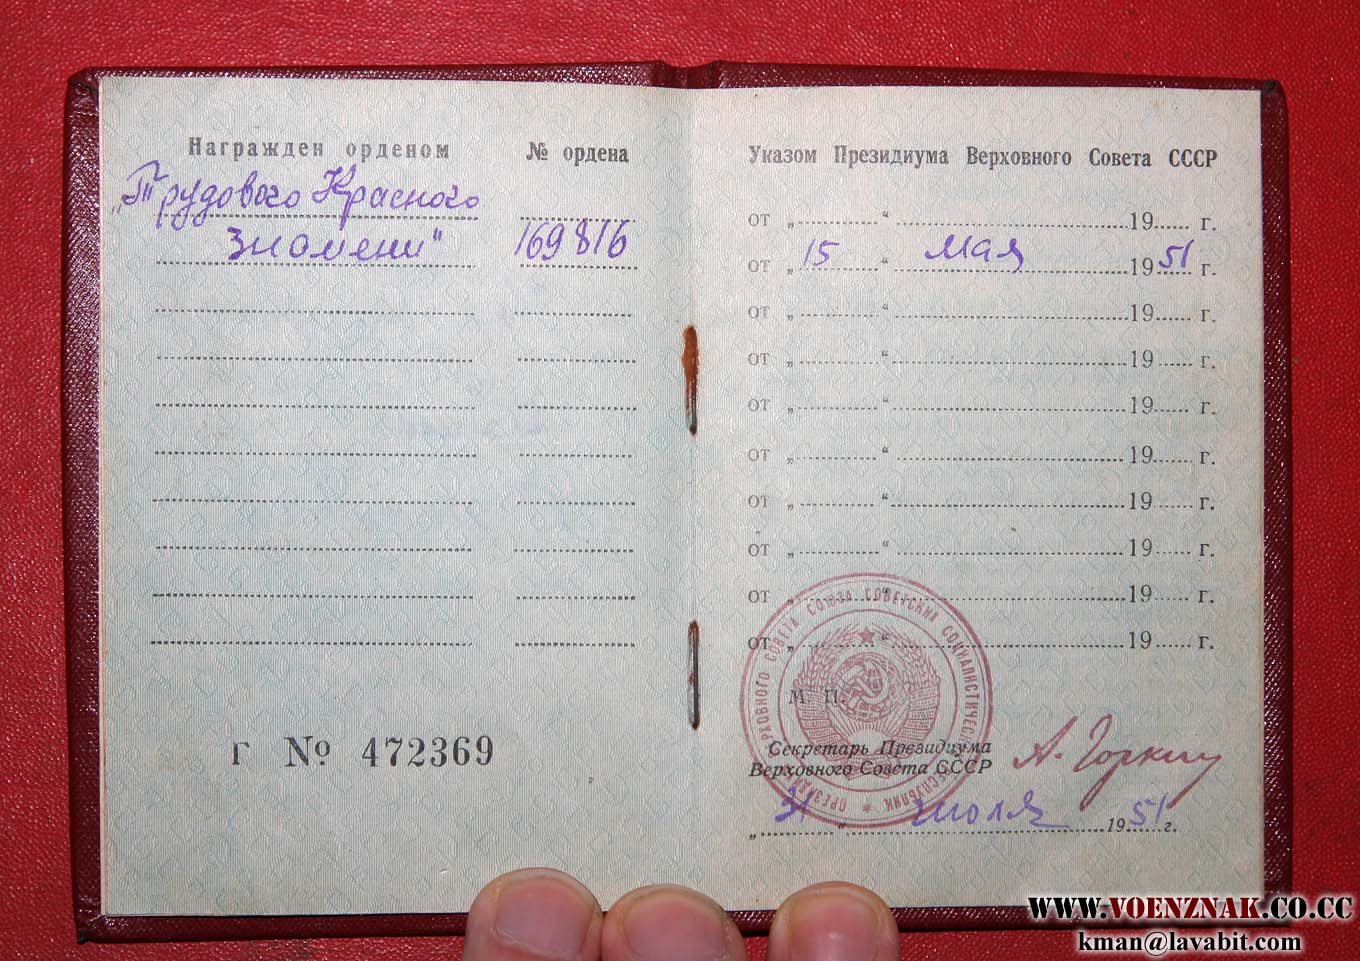 Награжден орденом № ордена
„Трудового Красного
Знамени“ 169816
Г № 472369
Указом Президиума Верховного Совета СССР
от „ “ 19 г.
от „ 15 “ мая 19 51 г.
от „ “ 19 г.
от „ “ 19 г.
от „ “ 19 г.
от „ “ 19 г.
от „ “ 19 г.
от „ “ 19 г.
от „ “ 19 г.
от „ “ 19 г.
М. П.
Секретарь Президиума
Верховного Совета СССР А. Горкин
„ 31 “ июля 19 51 г.
СОВЕТА СОЮЗА СОВЕТСКИХ
WWW.VOENZNAK.CO.CC
kman@lavabit.com